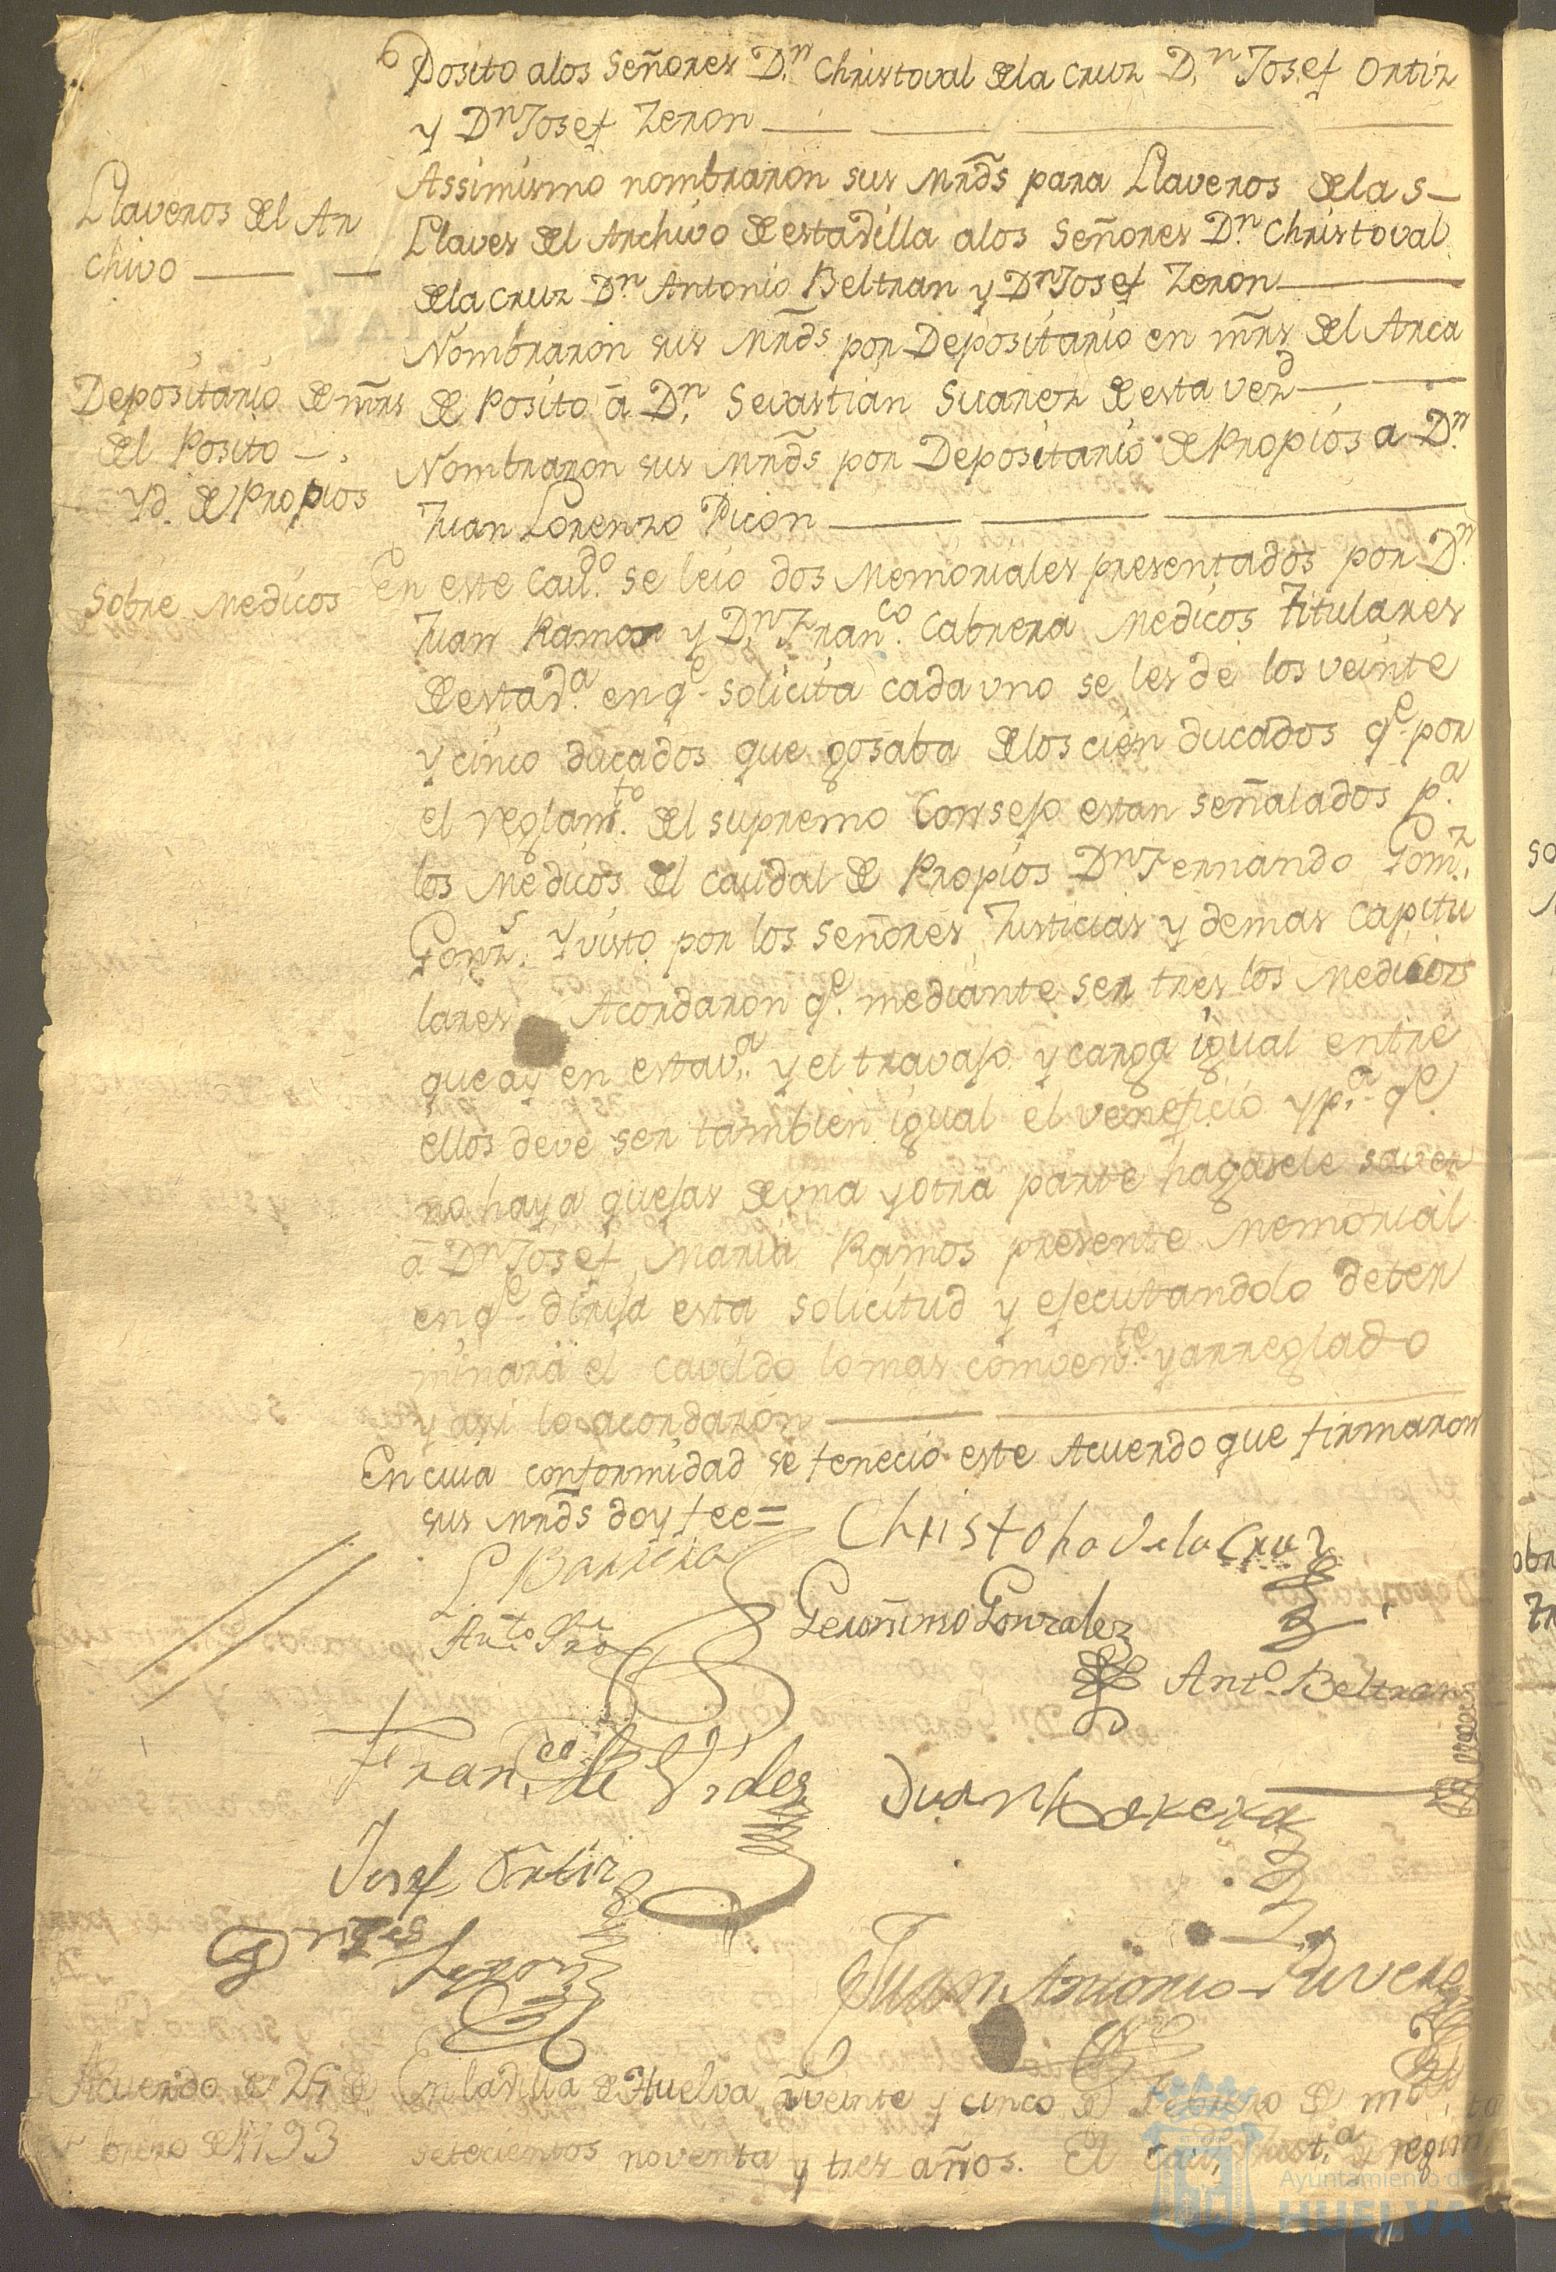 Posito alos Señores D.n Christoval dela Cruz D.n Josef Ortiz
y Dn Josef Zeron
Llaveros del Ar
chivo
Assimismo nombraron sus Mrds para Llaveros delas
Llaves del Archivo de estadilla alos Señores D.n Christoval
dela Cruz D.n Antonio Beltran y Dn Josef Zeron
Depositario de mrs
del Posito
yd. de Propios
Nombraron sus Mrds por Depositario en mrs del Arca
de Posito à D.n Sevastian Suarez de esta vezd
Nombraron sus Mrds por Depositario de Propios a D.n
Juan Lorenzo Picon
Sobre Medicos
En este Cavdo. se leió dos Memoriales presentados por D.n
Juan Ramos y Dn Franco. Cabrera Medicos Titulares
de estad.a en qe solicita cada uno se les dé los veinte
y cinco ducados que gosaba delos cien ducados qe por
el reglamto. del supremo Consejo estan señalados p.a
los Medicos del caudal de Propios Dn Fernando Gomz.
Gonzs. Y visto por los Señores Justicias y demas Capitu
lares Acordaron qe mediante ser tres los Medicos
que ay en estav.a y el travajo y carga igual entre
ellos deve ser tambien igual el veneficio y p.a qe
no haya quejas de una y otra parte hagasele saver
à Dn Josef Maria Ramos presente Memorial
en qe dirija esta solicitud y ejecutandolo deter
minara el cavildo lo mas combente. y arreglado
y asi lo acordaron
En cuia conformidad se feneció este Acuerdo que firmaron
sus Mrds doy fee=
L. Barrera
Christoho Dela Cruz
Geronimo Gonzalez
Anto. Beltran
Franco. de Vides
Juan Morera
Josef Ortiz
Zeron
Juan Antonio Rivero
Acuerdo de 25 de
Febrero de 1793
En la dvilla de Huelva à veinte y cinco de Febrero de mil
setecientos noventa y tres años. El Cav. Just.a y regim
Ayuntamiento de
HUELVA